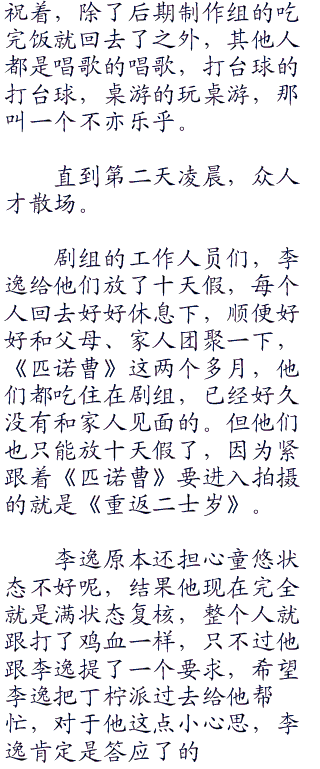 祝着，除了后期制作组的吃
完饭就回去了之外，其他人
都是唱歌的唱歌，打台球的
打台球，桌游的玩桌游，那
叫一个不亦乐乎。
直到第二天凌晨，众人
才散场。
剧组的工作人员们，李
逸给他们放了十天假，每个
人回去好好休息下，顺便好
好和父母、家人团聚一下，
《匹诺曹》这两个多月，他
们都吃住在剧组，已经好久
没有和家人见面的。但他们
也只能放十天假了，因为紧
跟着《匹诺曹》要进入拍摄
的就是《重返二士岁》。
李逸原本还担心童悠状
态不好呢，结果他现在完全
就是满状态复核，整个人就
跟打了鸡血一样，只不过他
跟李逸提了一个要求，希望
李逸把丁柠派过去给他帮
忙，对于他这点小心思，李
逸肯定是答应了的